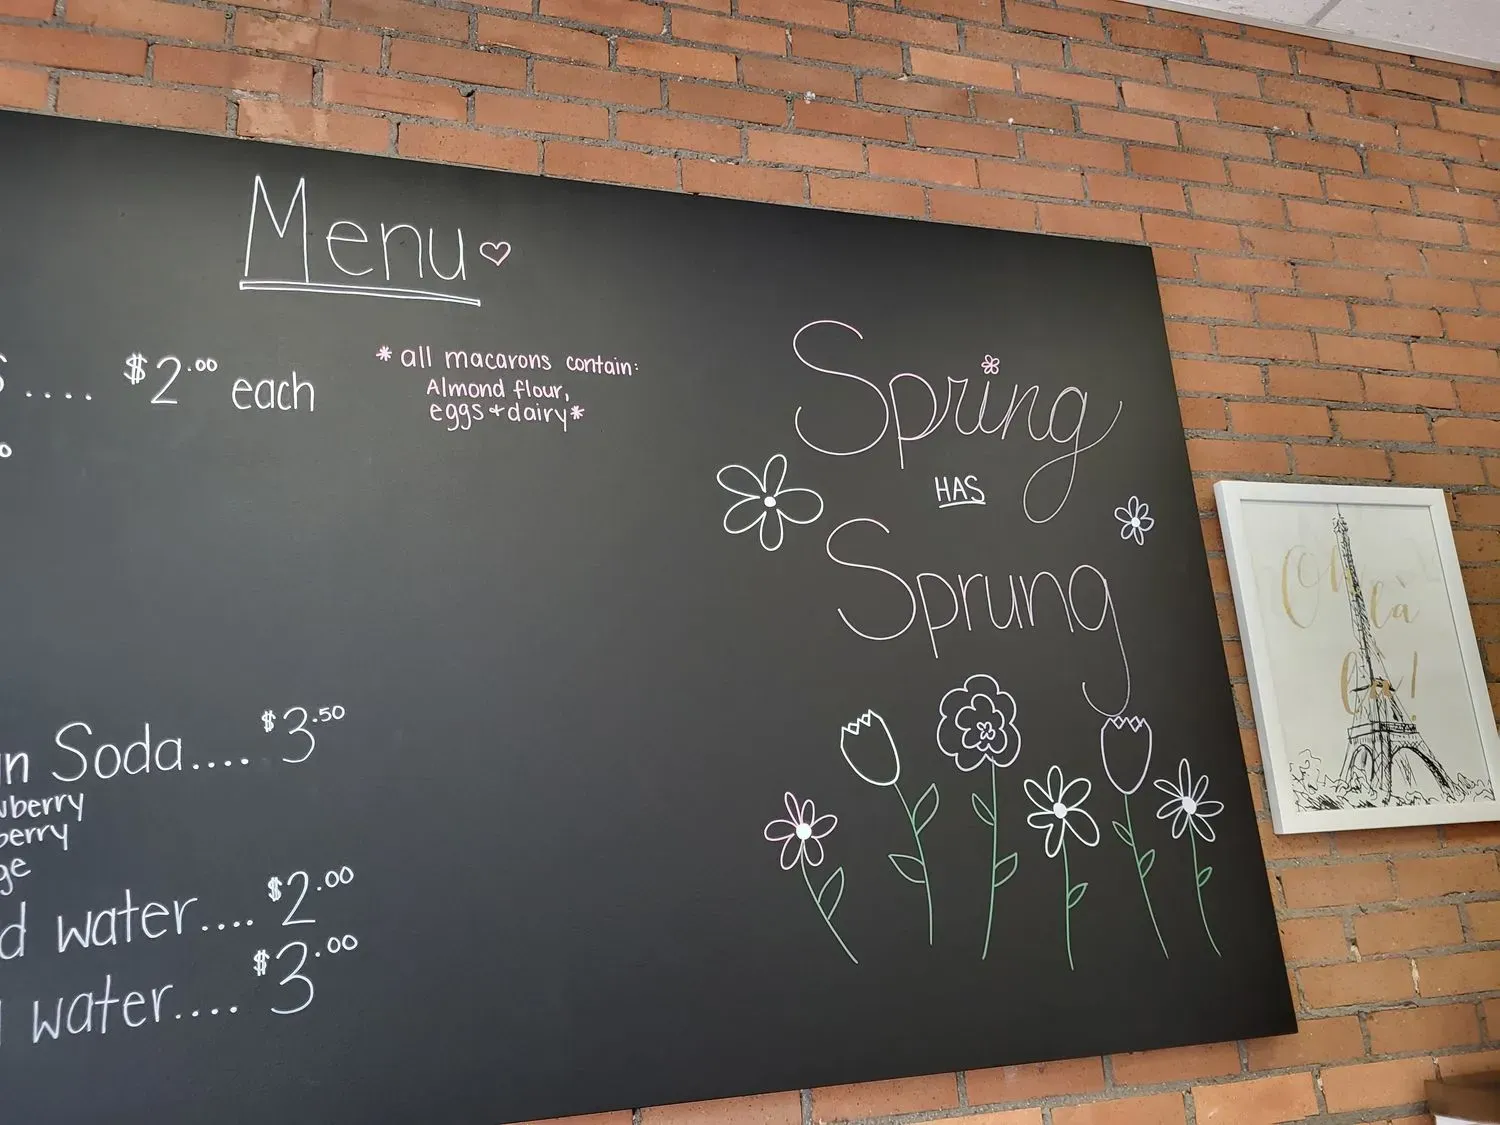 Menu
.... $2.00 each
* all macarons contain:
Almond flour,
eggs + dairy *
Soda.... $3.50
water.... $2.00
water.... $3.00
Spring
HAS
Sprung
Oh
là
là!